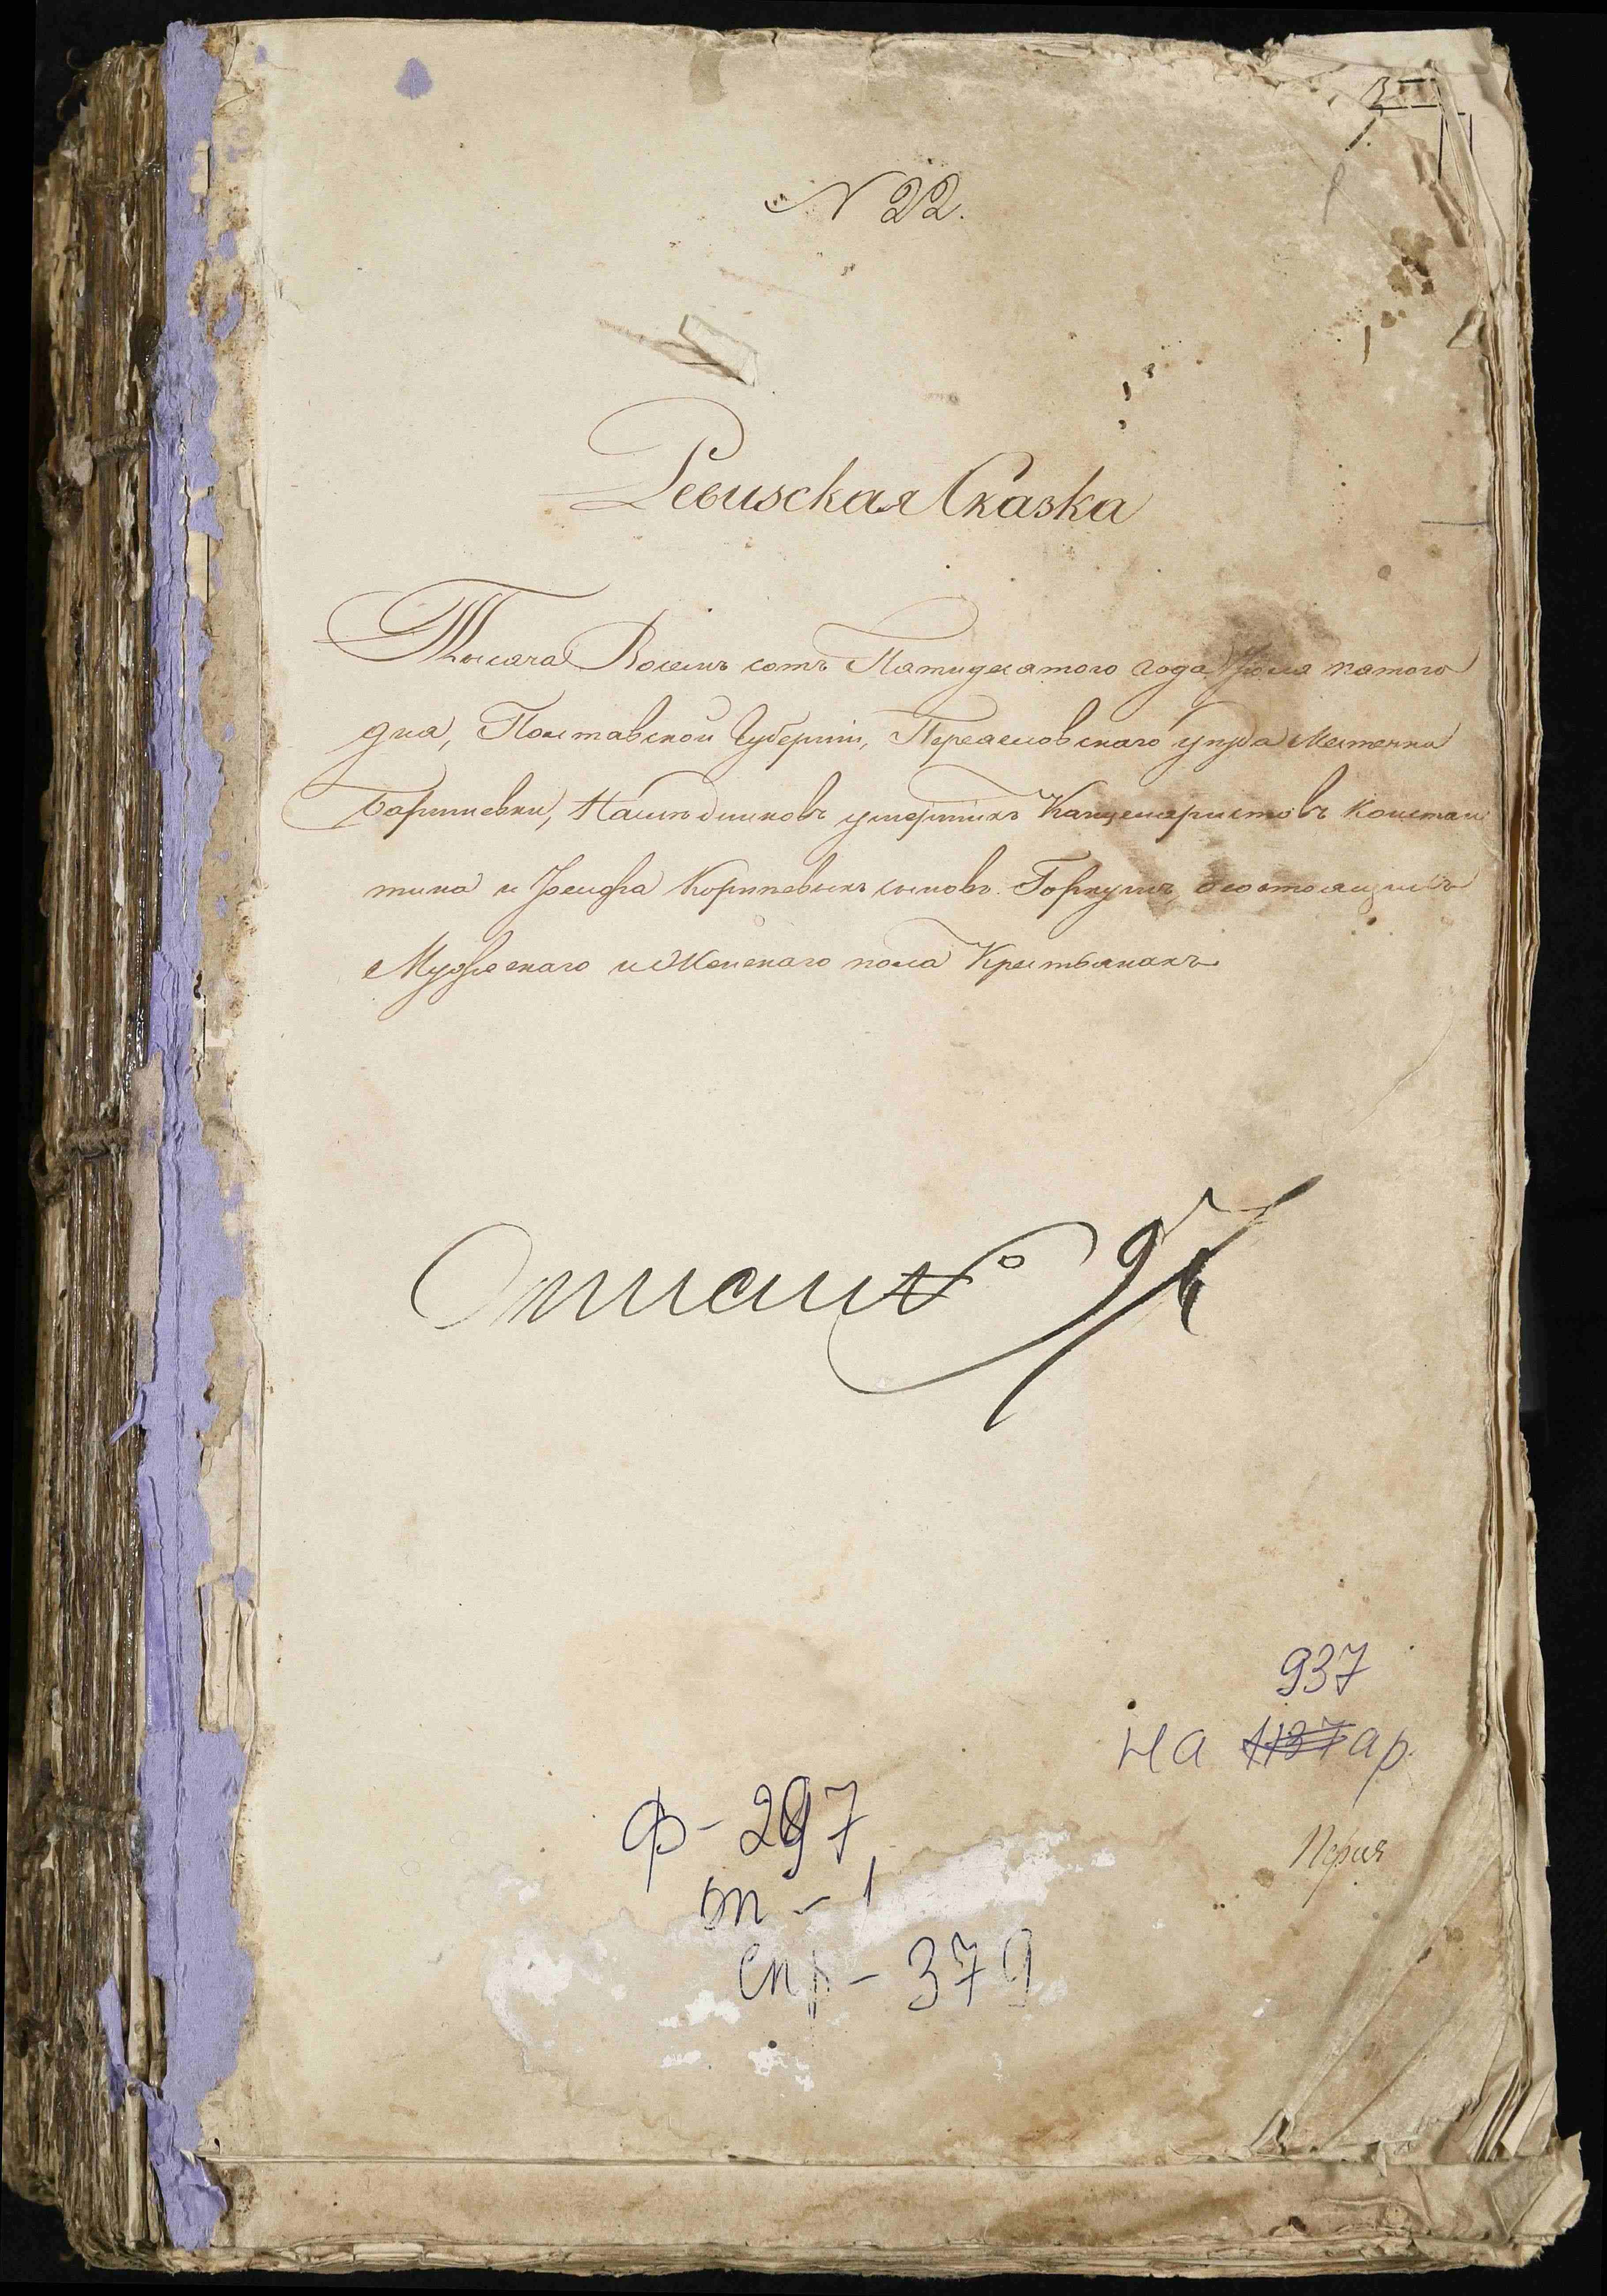 N 22.
Ревизская Сказка
Тысяча Восемь сотъ Пятидесятого года Іюля пятого
дня, Полтавской Губерніи, Переяславского уезда Местечка
Баришевки, Наследниковъ умершихъ Канцеляристовъ Констан
тина и Іосифа Корнѣевыхъ сыновъ состоящимъ
Мужескаго и Женскаго пола Крестьянахъ
Описи №
937
на 1137 ар.
ф - 297
оп - 1
спр - 379